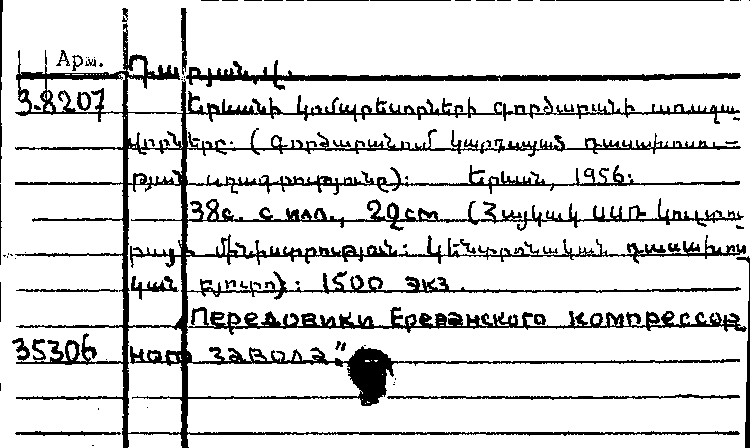 Арм. Դարյան, Վ.
3.8207 Երևանի կոմպրեսորների գործարանի առաջա
վորները: (Գործարանում կարդացած դասախոսու-
թյան սղագրությունը): Երևան, 1956:
38с. с илл., 20см (Հայկական ՍՍՌ Կուլտու
րայի մինիստրություն: Կենտրոնական դասախոս
կան բյուրո): 1500 экз.
Передовики Ереванского компрессор
35306 ного завода."